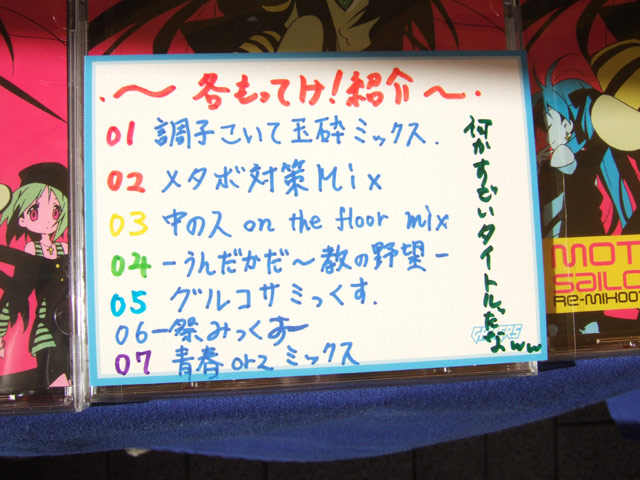 ～各もってけ!紹介～
01 調子こいて玉砕ミックス.
02 メタボ対策Mix
03 中の人 on the floor mix
04 -うんだかだ～教の野望-
05 グルコサミっくす.
06 -祭みっくす-
07 青春orzミックス
何かすごいタイトルだなww
GAMERS
MOT
SAILO
RE-MIX001